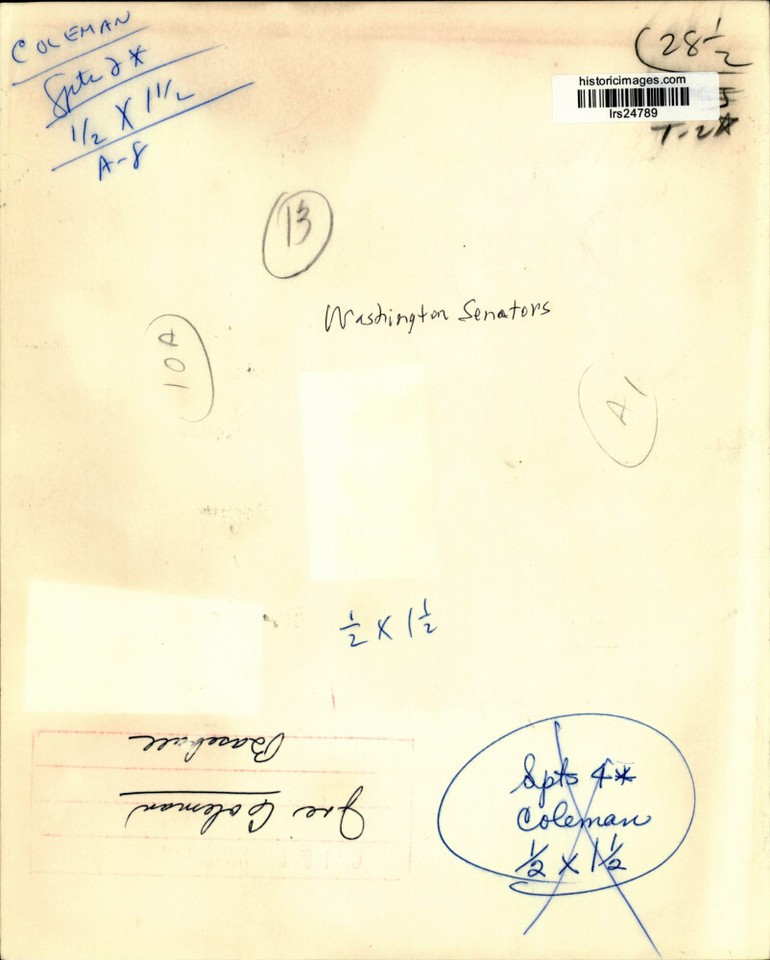 COLEMAN
Spts 2*
1/2 X 1 1/2
A-8
28 1/2
historicimages.com
lrs24789
T-2*
13
Washington Senators
10A
A1
1/2 X 1 1/2
Joe Coleman
Baseball
Spts 4*
Coleman
1/2 X 1 1/2